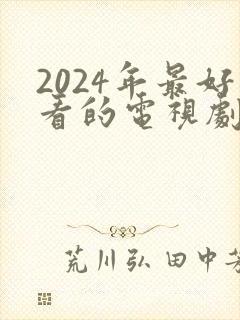 2024年最好
看的電視劇
荒川弘 田中芳